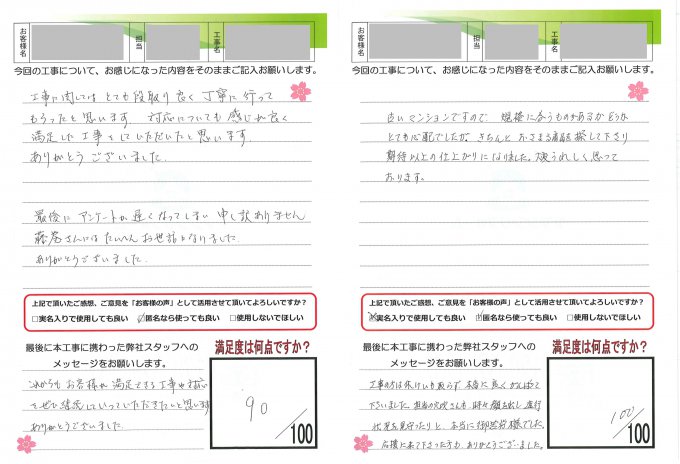 お客様名
担当
工事名
今回の工事について、お感じになった内容をそのままご記入お願いします。
工事に関してはとても段取り良く丁寧に行って
もらったと思います 対応についても感じ良く
満足した工事をしていただいたと思います
ありがとうございました
最後にアンケートが遅くなってしまい申し訳ありません
藤巻さんにはたいへんお世話になりました
ありがとうございました
上記で頂いたご感想、ご意見を「お客様の声」として活用させて頂いてよろしいですか?
□実名入りで使用しても良い ☑匿名なら使っても良い □使用しないでほしい
最後に本工事に携わった弊社スタッフへの
メッセージをお願いします。
これからもお客様が満足できる工事や対応
をぜひ継続していっていただきたいと思います
ありがとうございました
満足度は何点ですか?
90
/100
お客様名
担当
工事名
今回の工事について、お感じになった内容をそのままご記入お願いします。
古いマンションですので 規格に合うものがあるかどうか
とても心配でしたが、きちんとおさまる商品を探して下さり
期待以上の仕上がりになりました。大変うれしく思って
おります。
上記で頂いたご感想、ご意見を「お客様の声」として活用させて頂いてよろしいですか?
☒実名入りで使用しても良い □匿名なら使っても良い □使用しないでほしい
最後に本工事に携わった弊社スタッフへの
メッセージをお願いします。
工事の方は休けいも取らず 本当に良くがんばって
下さいました。担当の さんも 時々顔を出し 進行
状況を見守ったりと、本当に御苦労様でした。
応援に来て下さった方も、ありがとうございました。
満足度は何点ですか?
100
/100